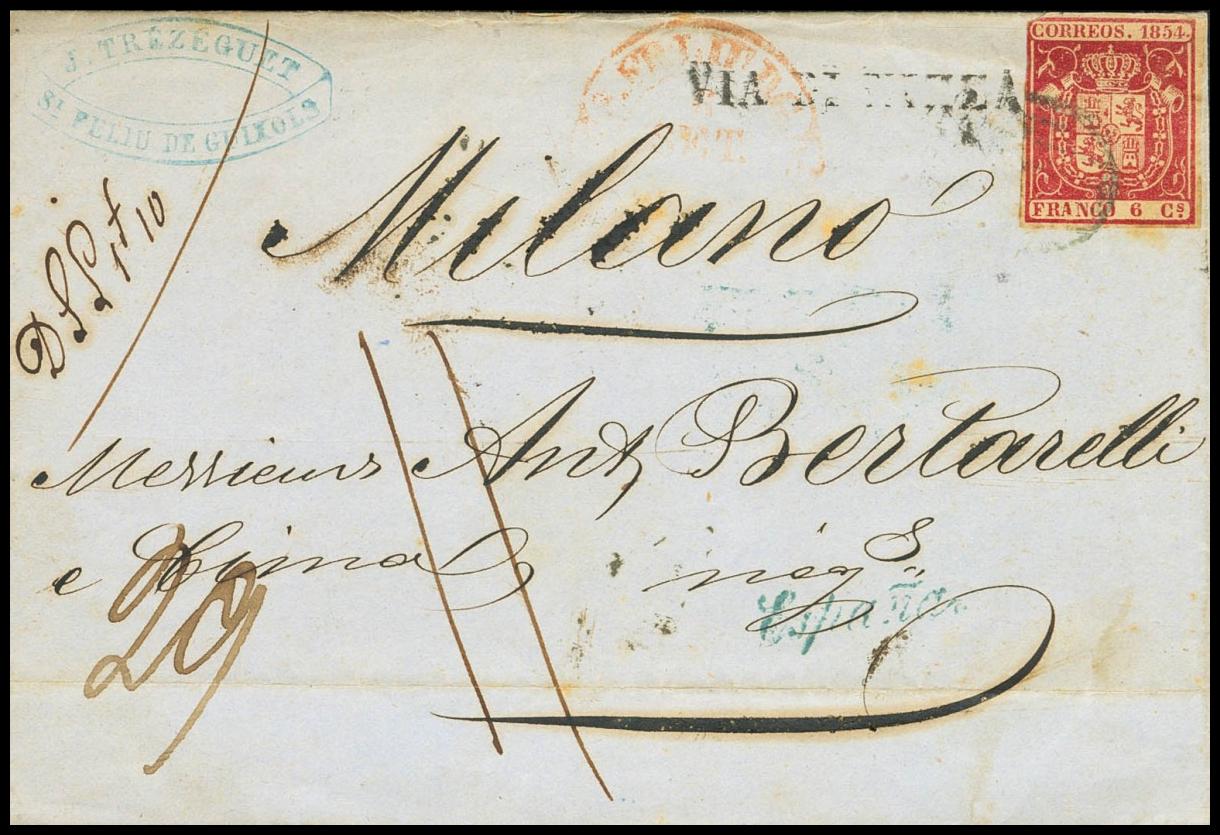 J. TRÉZÉGUET
St FELIU DE GUIXOLS
VIA DI
CORREOS. 1854.
FRANCO 6 Cs.
Milano
10
Messieurs Ant Bertarelli
e négs.
España.
29